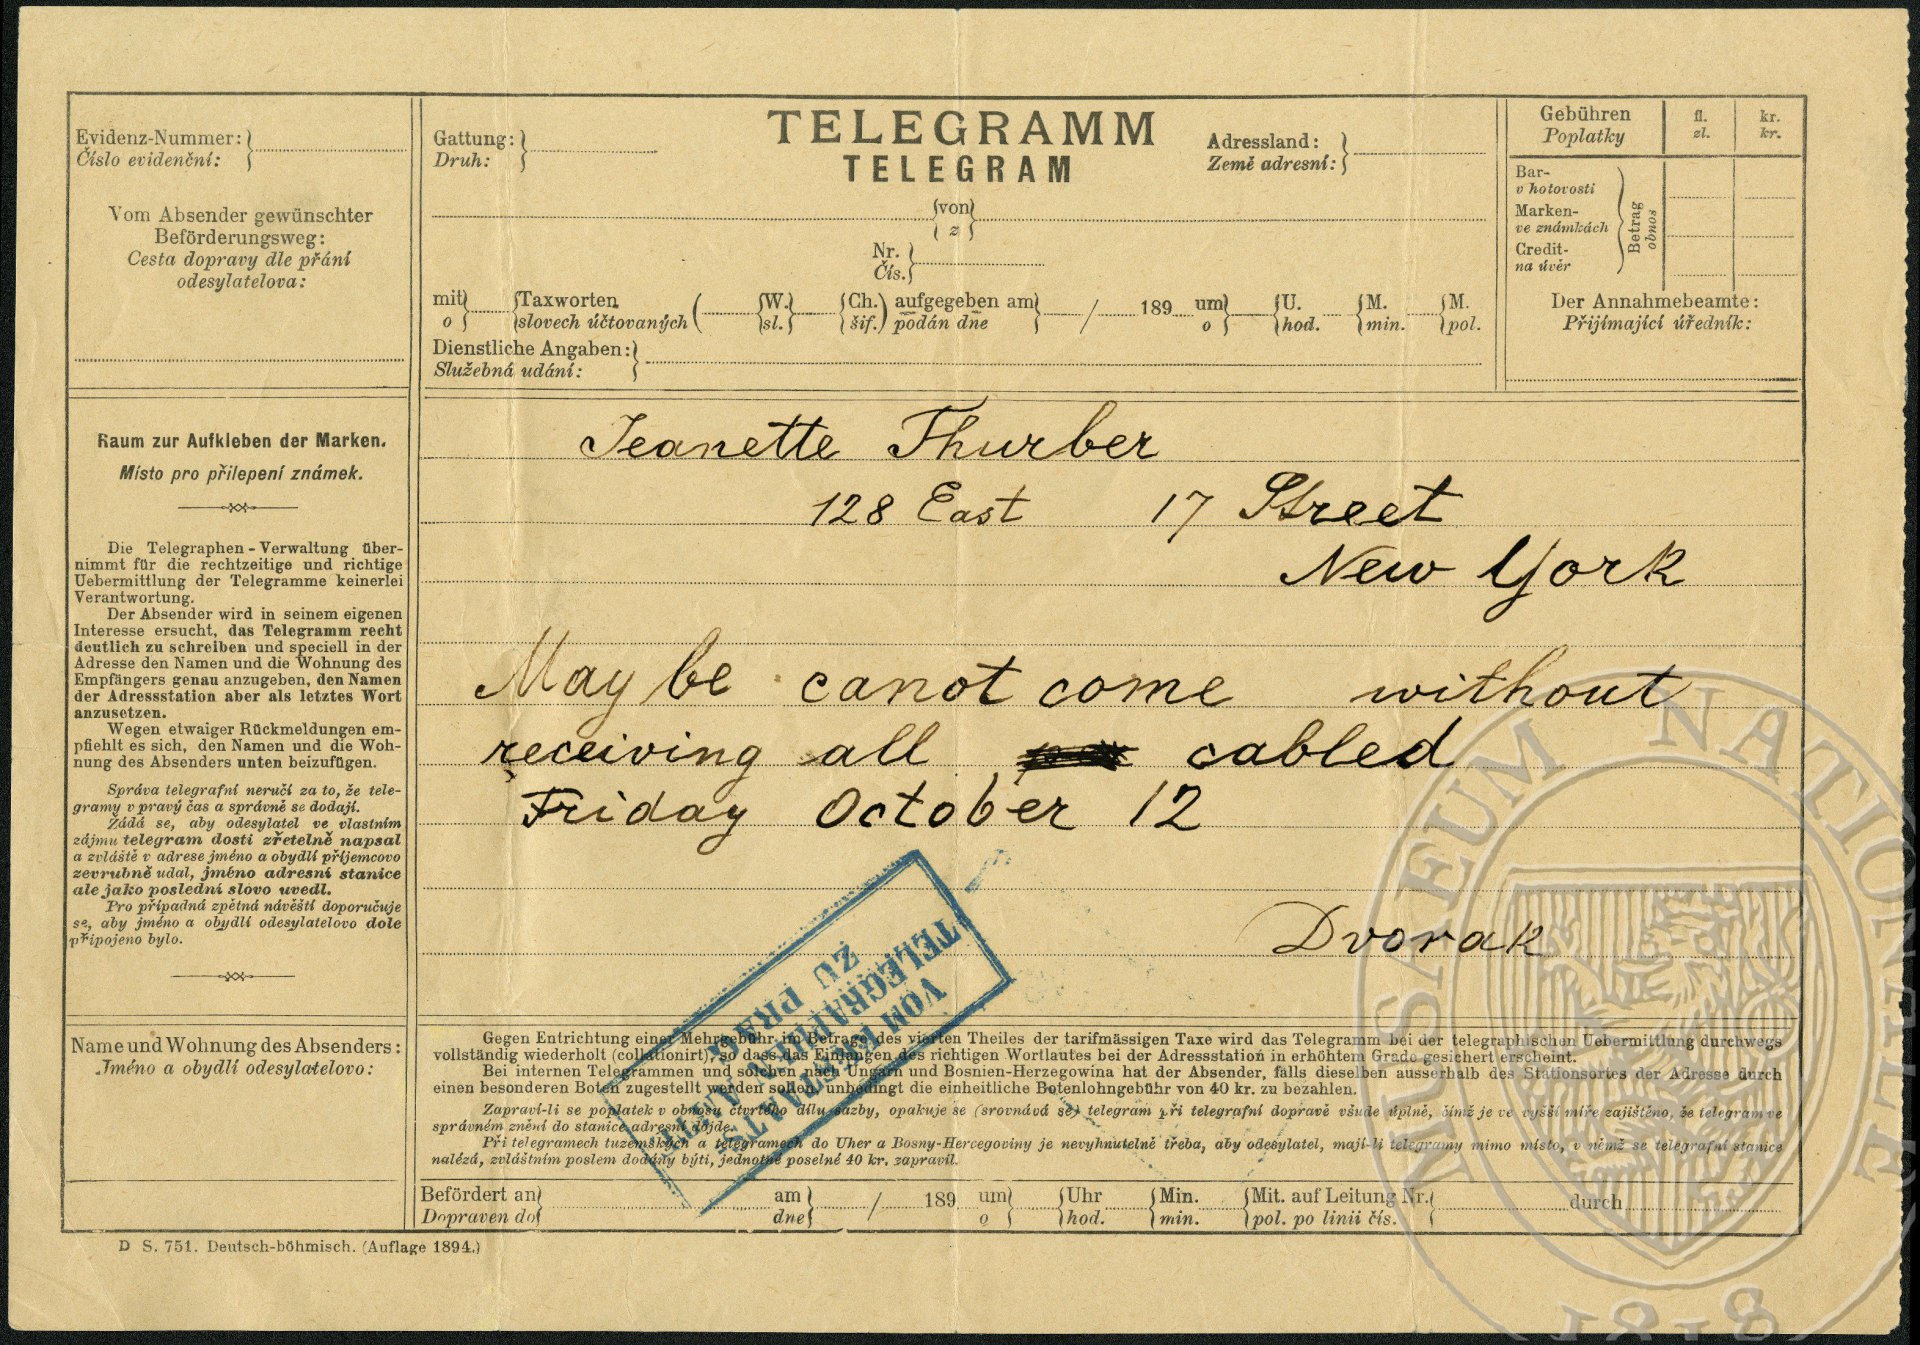 Evidenz-Nummer:
Číslo evidenční:
Vom Absender gewünschter
Beförderungsweg:
Cesta dopravy dle přání
odesylatelova:
Gattung:
Druh:
TELEGRAMM
TELEGRAM
Adressland:
Země adresní:
von
z
Nr.
Čís.
mit Taxworten ( W. Ch.) aufgegeben am / 189 um U. M. M.
o slovech účtovaných sl. šif.) podán dne o hod. min. pol.
Dienstliche Angaben:
Služebná udání:
Gebühren fl. kr.
Poplatky zl. kr.
Bar-
v hotovosti
Marken-
ve známkách
Credit-
na úvěr
Betrag
obnos
Der Annahmebeamte:
Přijímající úředník:
Raum zur Aufkleben der Marken.
Místo pro přilepení známek.
Die Telegraphen-Verwaltung über-
nimmt für die rechtzeitige und richtige
Uebermittlung der Telegramme keinerlei
Verantwortung.
Der Absender wird in seinem eigenen
Interesse ersucht, das Telegramm recht
deutlich zu schreiben und speciell in der
Adresse den Namen und die Wohnung des
Empfängers genau anzugeben, den Namen
der Adressstation aber als letztes Wort
anzusetzen.
Wegen etwaiger Rückmeldungen em-
pfiehlt es sich, den Namen und die Woh-
nung des Absenders unten beizufügen.
Správa telegrafní neručí za to, že tele-
gramy v pravý čas a správně se dodají.
Žádá se, aby odesylatel ve vlastním
zájmu telegram dosti zřetelně napsal
a zvláště v adrese jméno a obydlí příjemcovo
zevrubně udal, jméno adresní stanice
ale jako poslední slovo uvedl.
Pro případná zpětná návěští doporučuje
se, aby jméno a obydlí odesylatelovo dole
připojeno bylo.
Name und Wohnung des Absenders:
Jméno a obydlí odesylatelovo:
Jeanette Thurber
128 East 17 Street
New York
May be canot come without
receiving all cabled
Friday October 12
Dvorak
VOM K.K. STAATS
TELEGRAPHEN AMT
ZU PRAG
Gegen Entrichtung einer Mehrgebühr im Betrage des vierten Theiles der tarifmässigen Taxe wird das Telegramm bei der telegraphischen Uebermittlung durchwegs
vollständig wiederholt (collationirt), so dass das Einlangen des richtigen Wortlautes bei der Adressstation in erhöhtem Grade gesichert erscheint.
Bei internen Telegrammen und solchen nach Ungarn und Bosnien-Herzegowina hat der Absender, falls dieselben ausserhalb des Stationsortes der Adresse durch
einen besonderen Boten zugestellt werden sollen, unbedingt die einheitliche Botenlohngebühr von 40 kr. zu bezahlen.
Zapraví-li se poplatek v obnosu čtvrtého dílu sazby, opakuje se (srovnává se) telegram při telegrafní dopravě všude úplně, čímž je ve vyšší míře zajištěno, že telegram ve
správném znění do stanice adresní dojde.
Při telegramech tuzemských a telegramech do Uher a Bosny-Hercegoviny je nevyhnutelně třeba, aby odesylatel, mají-li telegramy mimo místo, v němž se telegrafní stanice
nalézá, zvláštním poslem dodány býti, jednotné poselné 40 kr. zapravil.
Befördert an am / 189 um Uhr Min. Mit. auf Leitung Nr. durch
Dopraven do dne o hod. min. pol. po linii čís.
D S. 751. Deutsch-böhmisch. (Auflage 1894.)
MUSAEUM NATIONALE
1818